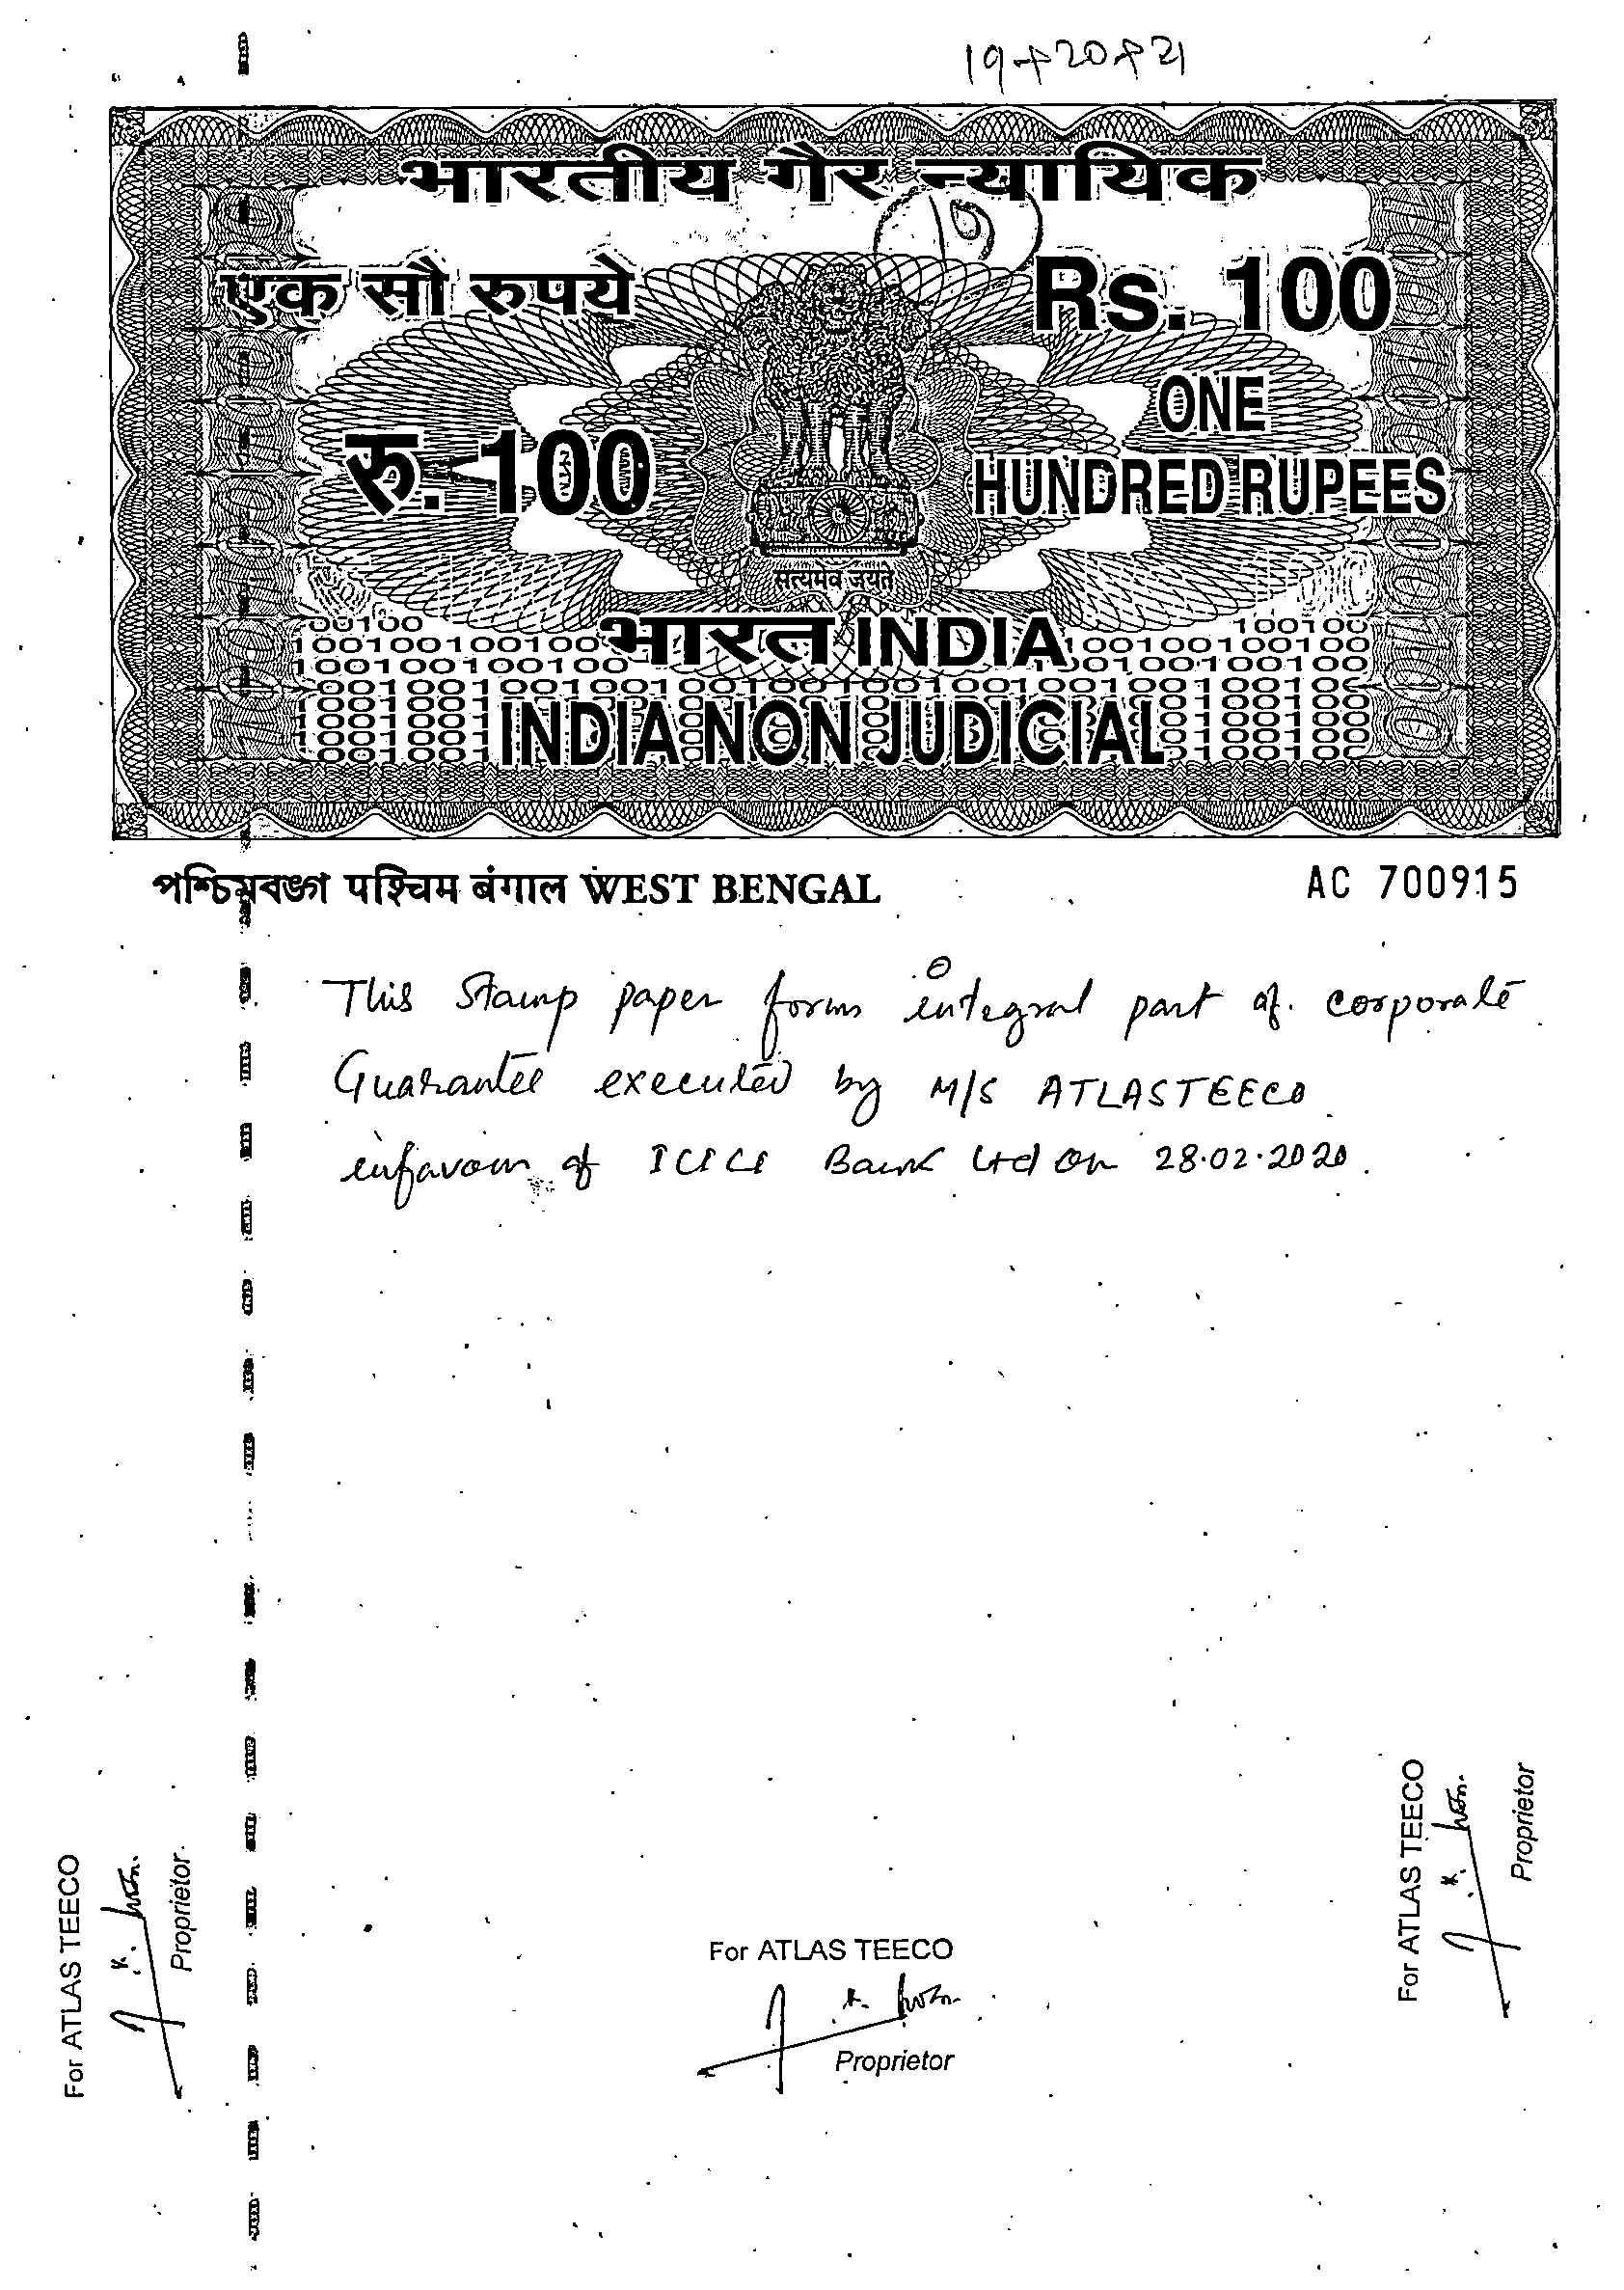 19+20+21
भारतीय गैर न्यायिक
एक सौ रुपये
Rs. 100
रु. 100
ONE
HUNDRED RUPEES
सत्यमेव जयते
भारत INDIA
INDIA NON JUDICIAL
পশ্চিমবঙ্গ पश्चिम बंगाल WEST BENGAL
AC 700915
This Stamp paper forms integral part of corporate
Guarantee executed by M/S ATLASTEECO
infavour of ICICI Bank Ltd on 28.02.2020.
For ATLAS TEECO
Proprietor
For ATLAS TEECO
Proprietor
For ATLAS TEECO
Proprietor